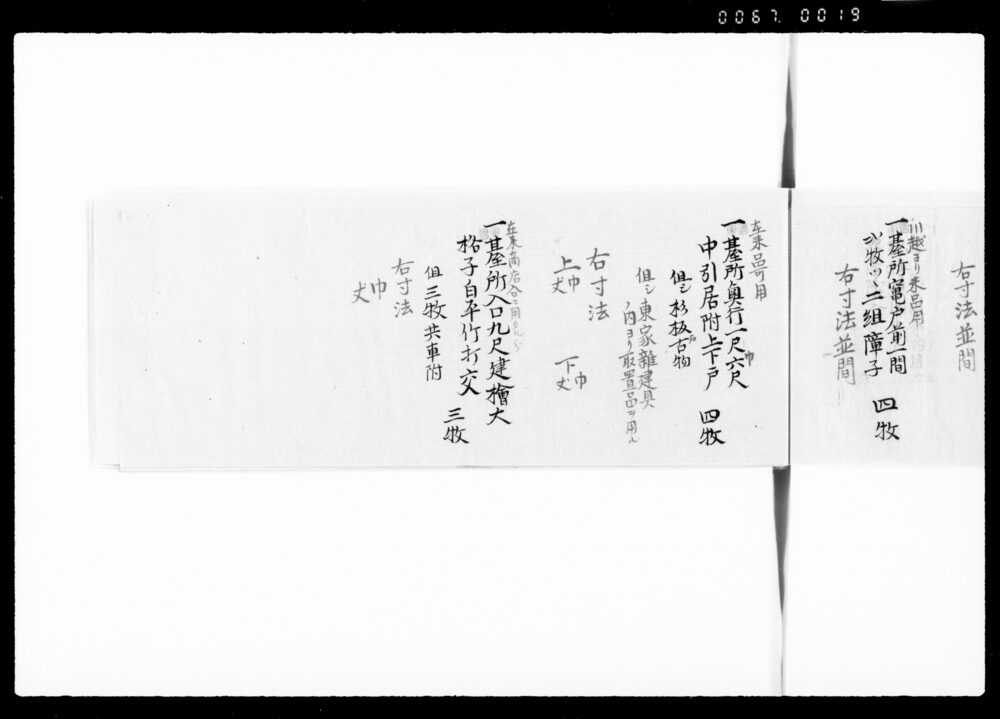 0067. 0019
右寸法並間
川越ヨリ来品用
一基所竃戸前一間
弐牧ツヽ二組障子 四牧
右寸法並間
在来品可用
一基所奥行一尺六尺巾
中引居附上下戸 四牧
但シ杉板戸古物
但シ東家雑建具
ノ内ヨリ取置品ヲ用ル
右寸法
上巾丈 下巾丈
一基所入口九尺建檜大
格子白平竹打交 三牧
但三牧共車附
右寸法
巾
丈